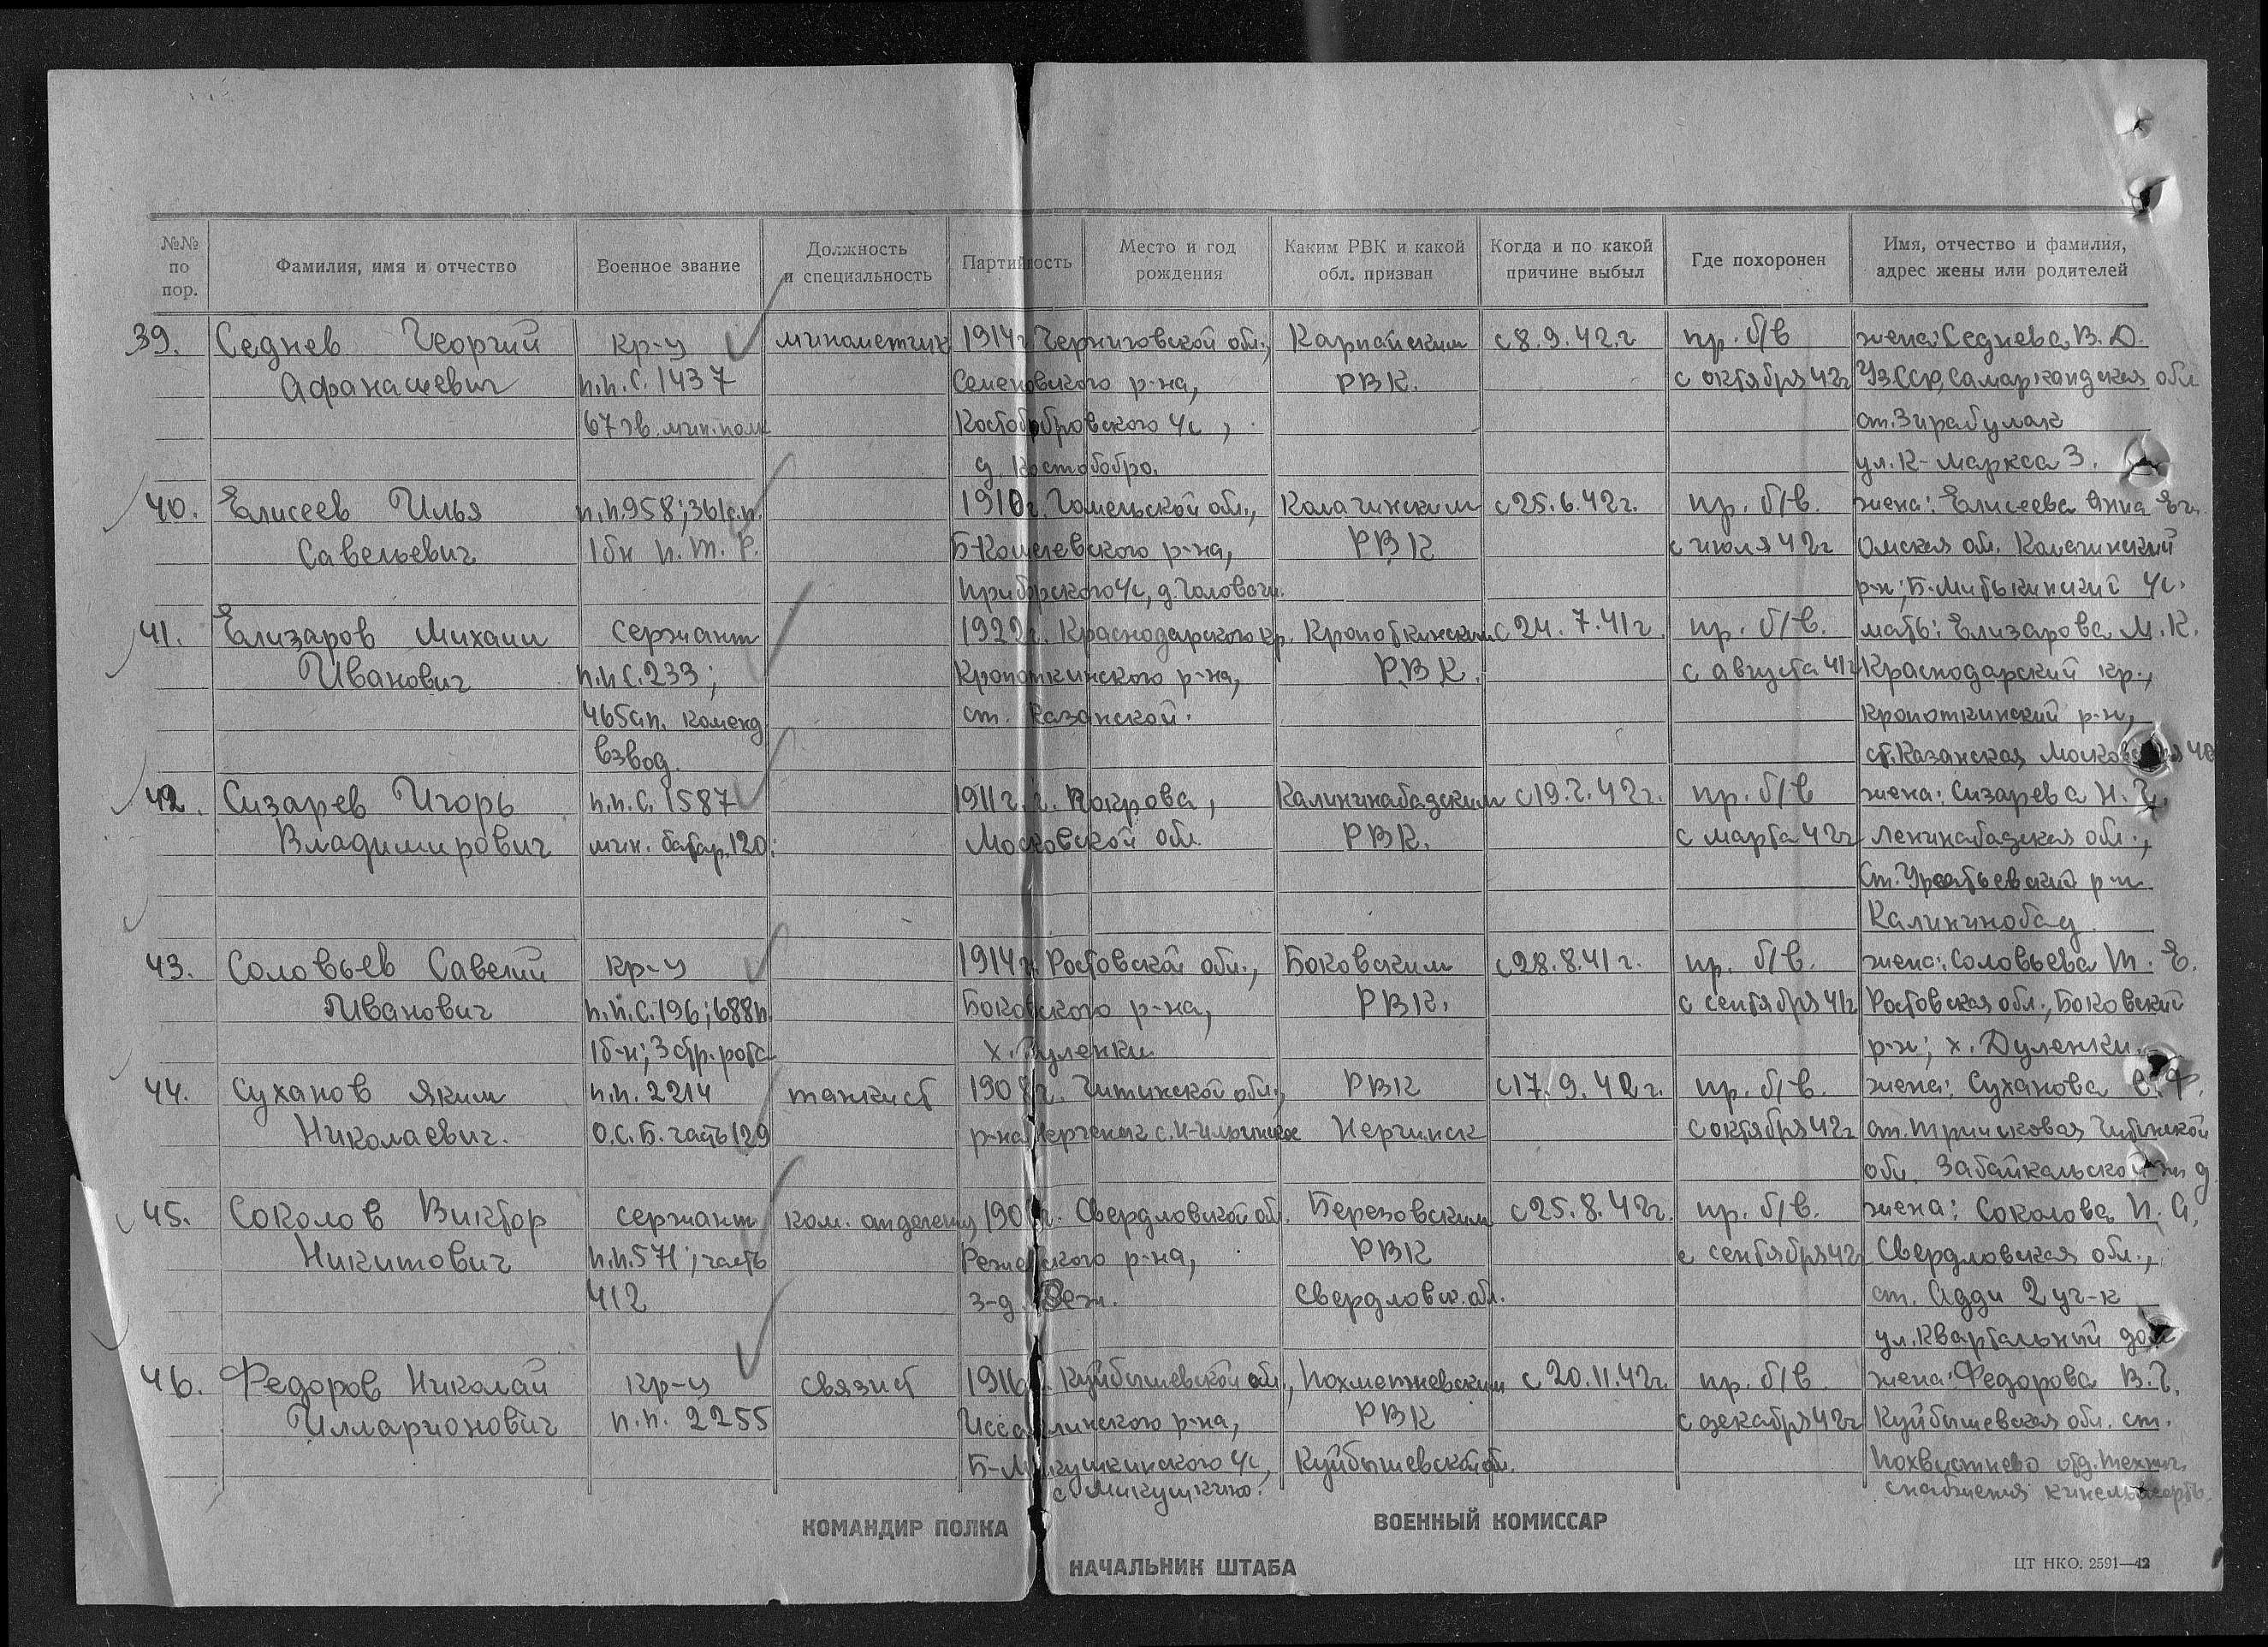 №№ по пор. Фамилия, имя и отчество Военное звание Должность и специальность Партийность Место и год рождения Каким РВК и какой обл. призван Когда и по какой причине выбыл Где похоронен Имя, отчество и фамилия, адрес жены или родителей
39. Седнев Георгий кр-ц минометчик 1914г Черниговской обл., Карпайским с 8.9.42.г пр. б/в жена: Седнева В. Д.
Афанасиевич п.п.с. 1437 Семеновского р-на, РВК. с октября 42г УзССР, Самаркандская обл
67 гв. мин. полк Костобобровского ч/с, ст. Зирабулак
д. Костобобро. ул. К-Маркса 3.
40. Елисеев Илья п.п.958; 361с.п. 1910г. Гомельской обл., Калачинским с 25.6.42г. пр. б/в. жена: Елисеева Анна
Савельевич 1бн п.т.р. Б-Кошелевского р-на, РВК с июля 42г Омская обл. Калачинский
Приборского ч/с, д. р-н; Б-Митькинский ч/с.
41. Елизаров Михаил сержант 1922г. Краснодарского кр. Кропоткинским с 24.7.41г. пр. б/в. мать: Елизарова М.К.
Иванович п.п с.233; Кропоткинского р-на, РВК. с августа 41г Краснодарский кр.,
465сп. коменд ст. Казанской. Кропоткинский р-н,
взвод. ст. Казанская
42. Сизарев Игорь п.п.с. 1587 1911г. г. Покрова, Калининабадским пр. б/в жена: Сизарева Н.
Владимирович мин. батар. 120. Московской обл. РВК. с марта 42г Ленинабадская обл.,
р-н.
Калининобад
43. Соловьев Савелий кр-ц 1914г. Ростовской обл., Боковским с 28.8.41г. пр. б/в. жена: Соловьева М. Е.
Иванович п.п.с.196; 688п. Боковского р-на, РВК. с сентября 41г Ростовская обл., Боковский
1б-н; 3 стр. рота х. Дуленки р-н; х. Дуленки.
44. Суханов Яким п.п. 2214 танкист 1908г. Читинской обл., РВК с 17.9.42г. пр. б/в. жена: Суханова
Николаевич. О.С.Б. часть 129 р-на Нерчинск с октября 42г ст. Читинской
обл. Забайкальской ж д
45. Соколов Виктор сержант ком. отделения Свердловской об. Березовским с 25.8.42г. пр. б/в. жена: Соколова
Никитович п.п.571; часть Режевского р-на, РВК с сентября 42г Свердловская обл.,
412 з-д Реж. Свердловск. обл. ст. Адди 2 уч-к
ул. Квартальный дом
46. Федоров Николай кр-ц связист 1916г. Куйбышевской обл., с 20.11.42г. пр. б/в. жена: Федорова В.
Илларионович п.п. 2255 р-на, РВК с декабря 42г Куйбышевская обл. ст.
Б-Микушкинского ч/с, Куйбышевской об. Похвистнево отд. технич.
с Микушкино. снабжения
КОМАНДИР ПОЛКА ВОЕННЫЙ КОМИССАР
НАЧАЛЬНИК ШТАБА ЦТ НКО. 2591—42